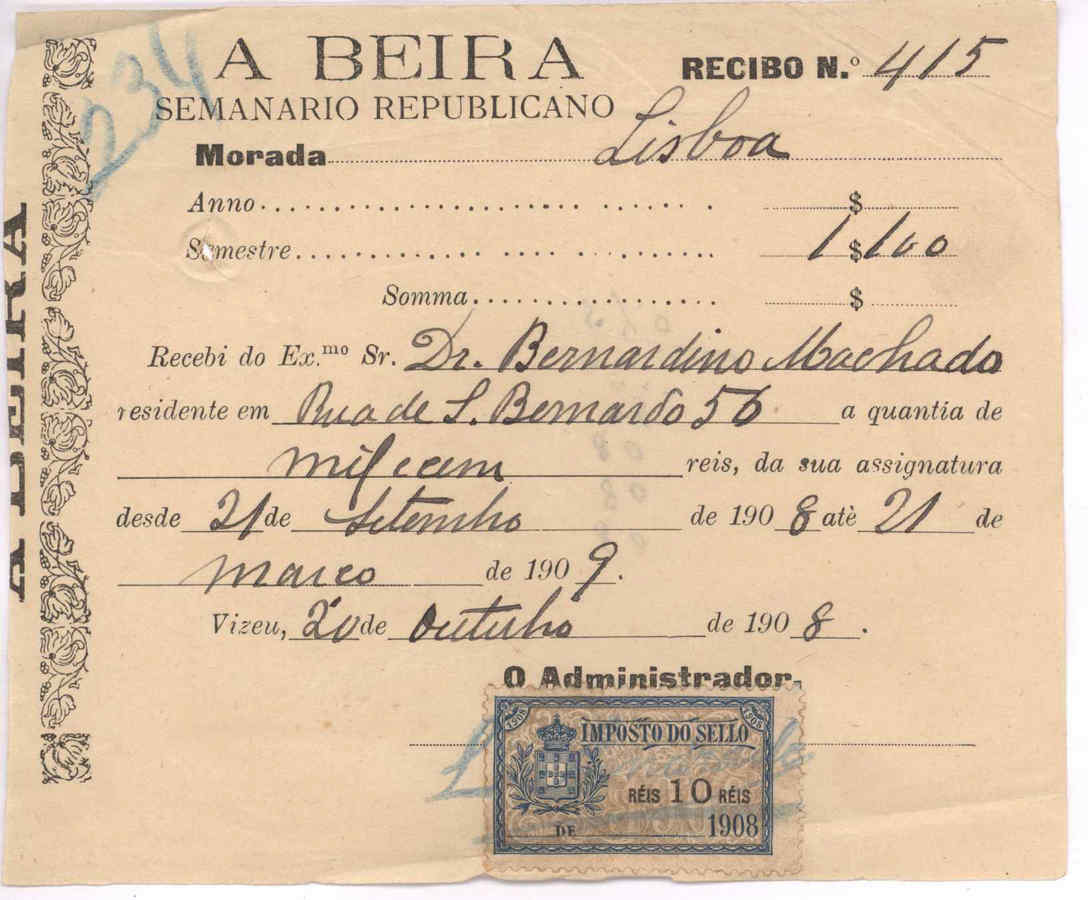 234
A BEIRA
RECIBO N.º 415
SEMANARIO REPUBLICANO
Morada Lisboa
Anno $
Semestre 1 $ 100
Somma $
Recebi do Ex.mo Sr. Dr. Bernardino Machado
residente em Rua de S. Bernardo 56 a quantia de
mil e cem reis, da sua assignatura
desde 21 de Setembro de 1908 atè 21 de
março de 1909.
Vizeu, 20 de Outubro de 1908.
O Administrador,
1908 1908
IMPOSTO DO SELLO
RÉIS 10 RÉIS
DE 1908
A BEIRA